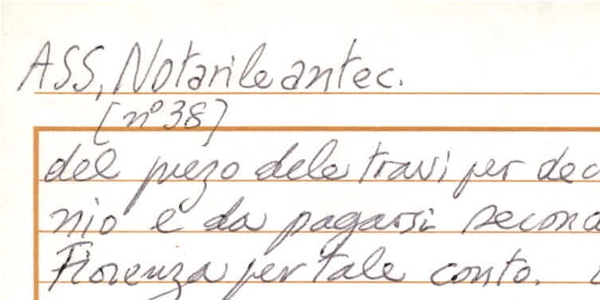 ASS, Notarile antec.
[n° 38]
del prezo dele travi per
nio e da pagarsi
Fiorenza per tale conto.